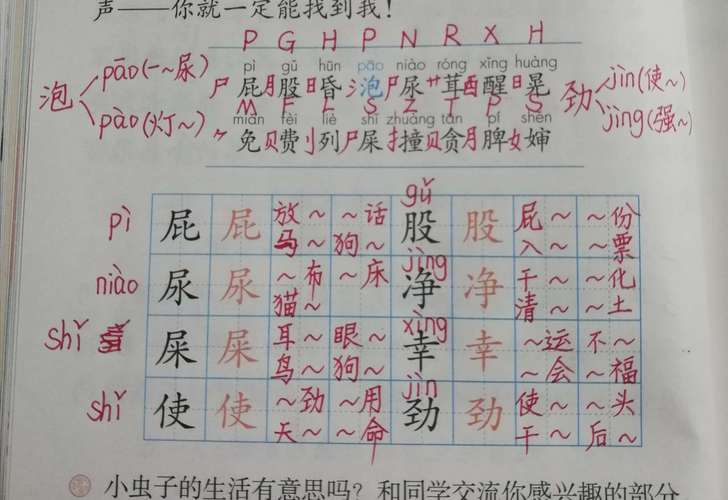 声——你就一定能找到我！
P G H P N R X H
pì gǔ hūn pāo niào róng xǐng huàng
尸屁月股日昏氵泡尸尿艹茸酉醒日晃
泡 pāo(一~尿) pào(灯~)
劲 jìn(使~) jìng(强~)
M F L S Z T P S
miǎn fèi liè shǐ zhuàng tān pí shěn
免贝费刂列尸屎扌撞贝贪月脾女婶
pì 屁 屁 放~ ~话 gǔ 股 股 屁~ ~份
马~ 狗~ 入~ ~票
niào 尿 尿 ~布 ~床 jìng 净 净 干~ ~化
猫~ 清~ ~土
shǐ 屎 屎 耳~ 眼~ xìng 幸 幸 ~运 不~
鸟~ 狗~ ~会 ~福
shǐ 使 使 ~劲 ~用 jìn 劲 劲 使~ ~头
天~ ~命 干~ 后~
小虫子的生活有意思吗？和同学交流你感兴趣的部分